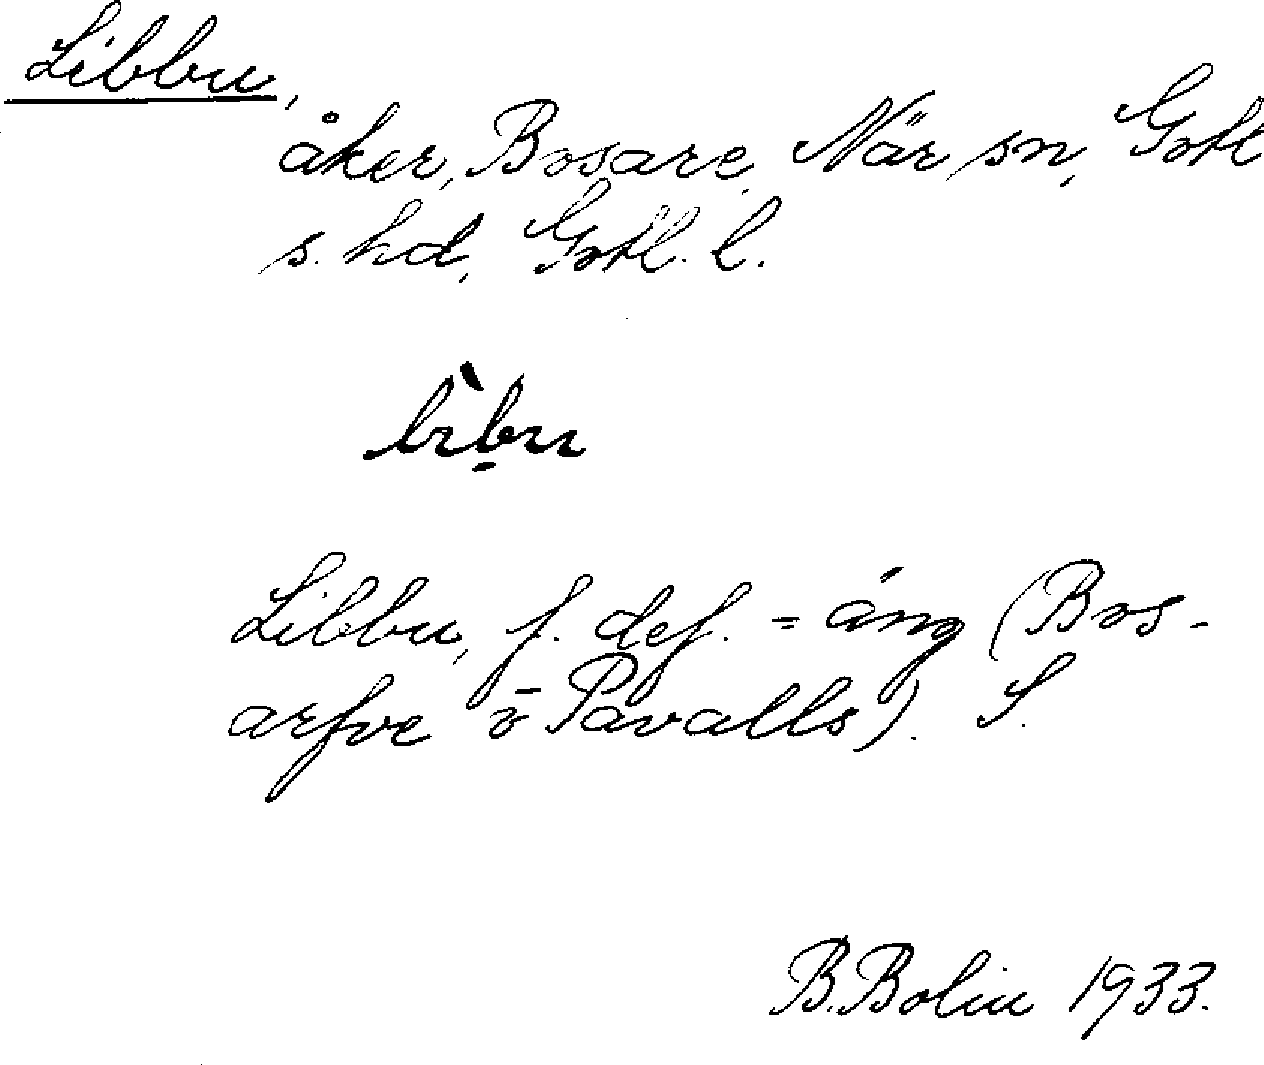 Libbu,
åker, Bosarve, När sn, Gotl
s. hd, Gotl. l.
lìb̠u
Libbu, f. def. = äng (Bos-
arfve o Pavalls). S.
B. Bolin 1933.